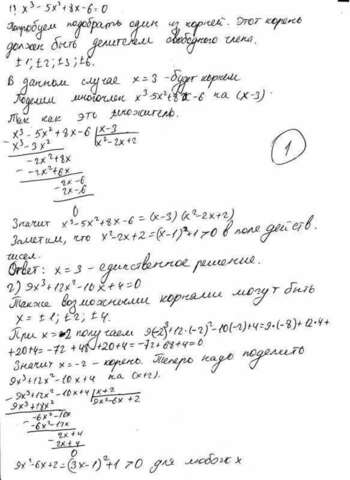 1) x³ - 5x² + 8x - 6 = 0
Попробуем подобрать один из корней. Этот корень
должен быть делителем свободного члена.
±1; ±2; ±3; ±6.
В данном случае x = 3 - будет корнем
Поделим многочлен x³ - 5x² + 8x - 6 на (x - 3).
Так как это множитель.
x³ - 5x² + 8x - 6 | x - 3
x³ - 3x² | x² - 2x + 2
-2x² + 8x
-2x² + 6x
2x - 6
2x - 6
0
1
Значит x³ - 5x² + 8x - 6 = (x - 3)(x² - 2x + 2)
Заметим, что x² - 2x + 2 = (x - 1)² + 1 > 0 в поле действ.
чисел.
Ответ: x = 3 - единственное решение.
2) 9x³ + 12x² - 10x + 4 = 0
Также возможными корнями могут быть
x = ±1; ±2; ±4.
При x = -2 получаем 9(-2)³ + 12·(-2)² - 10(-2) + 4 = 9·(-8) + 12·4 +
+ 20 + 4 = -72 + 48 + 20 + 4 = -72 + 68 + 4 = 0
Значит x = -2 - корень. Теперь надо поделить
9x³ + 12x² - 10x + 4 на (x + 2).
9x³ + 12x² - 10x + 4 | x + 2
9x³ + 18x² | 9x² - 6x + 2
-6x² - 10x
-6x² - 12x
2x + 4
2x + 4
0
9x² - 6x + 2 = (3x - 1)² + 1 > 0 для любого x